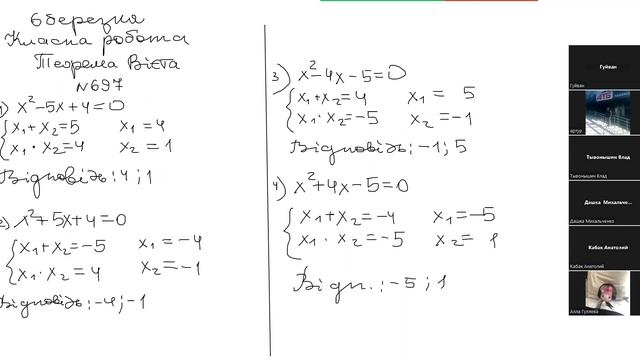 6 березня
Класна робота
Теорема Вієта
№697
1) x²-5x+4=0
x₁+x₂=5 x₁=4
x₁·x₂=4 x₂=1
Відповідь: 4; 1
2) x²+5x+4=0
x₁+x₂=-5 x₁=-4
x₁·x₂=4 x₂=-1
Відповідь: -4; -1
3) x²-4x-5=0
x₁+x₂=4 x₁=5
x₁·x₂=-5 x₂=-1
Відповідь: -1; 5
4) x²+4x-5=0
x₁+x₂=-4 x₁=-5
x₁·x₂=-5 x₂=1
Відп.: -5; 1
Гуйван
Гуйван
артур
Тывонышин Влад
Тывонышин Влад
Дашка Михальче...
Дашка Михальченко
Кабак Анатолий
Кабак Анатолий
Алла Гуляева